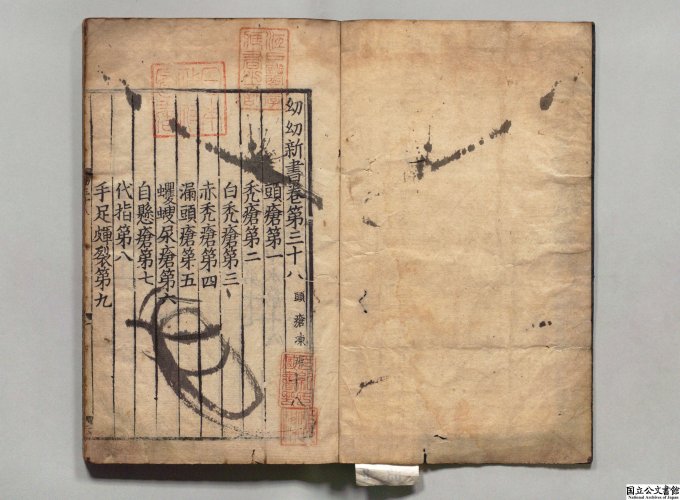 幼幼新書卷第三十八 頭瘡凍 十八
頭瘡第一
禿瘡第二
白禿瘡第三
赤禿瘡第四
漏頭瘡第五
蠼螋尿瘡第六
自懸瘡第七
代指第八
手足皸裂第九
国立公文書館
National Archives of Japan